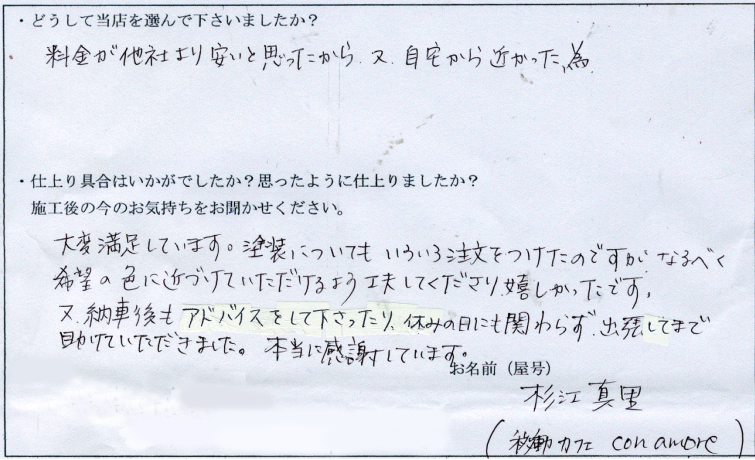 ・どうして当店を選んで下さいましたか？
料金が他社より安いと思ったから 又、自宅から近かった為
・仕上り具合はいかがでしたか？思ったように仕上りましたか？
施工後の今のお気持ちをお聞かせください。
大変満足しています。塗装についてもいろいろ注文をつけたのですが、なるべく
希望の色に近づけていただけるよう工夫してくださり、嬉しかったです。
又、納車後もアドバイスをして下さったり、休みの日にも関わらず、出張してまで
助けていただきました。本当に感謝しています。
お名前（屋号）
杉江真里
(移動カフェ con amore)